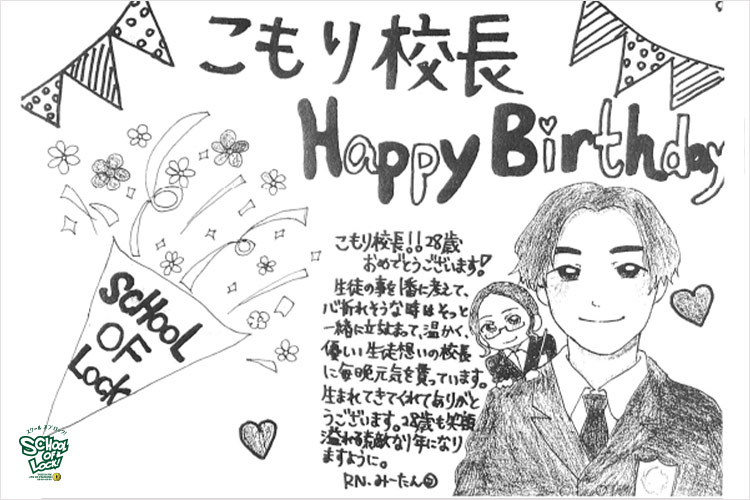 こもり校長
Happy Birthday
SCHOOL
OF
LOCK
こもり校長!!28歳
おめでとうございます!
生徒の事を1番に考えて、
心折れそうな時はそっと
一緒に立ち止まって、温かく、
優しい生徒想いの校長
に毎晩元気を貰っています。
生まれてきてくれてありがと
うございます。28歳も笑顔
溢れる素敵な年になり
ますように。
RN.みーたん
スクール オブ ロック!
SCHOOL
OF
LOCK!